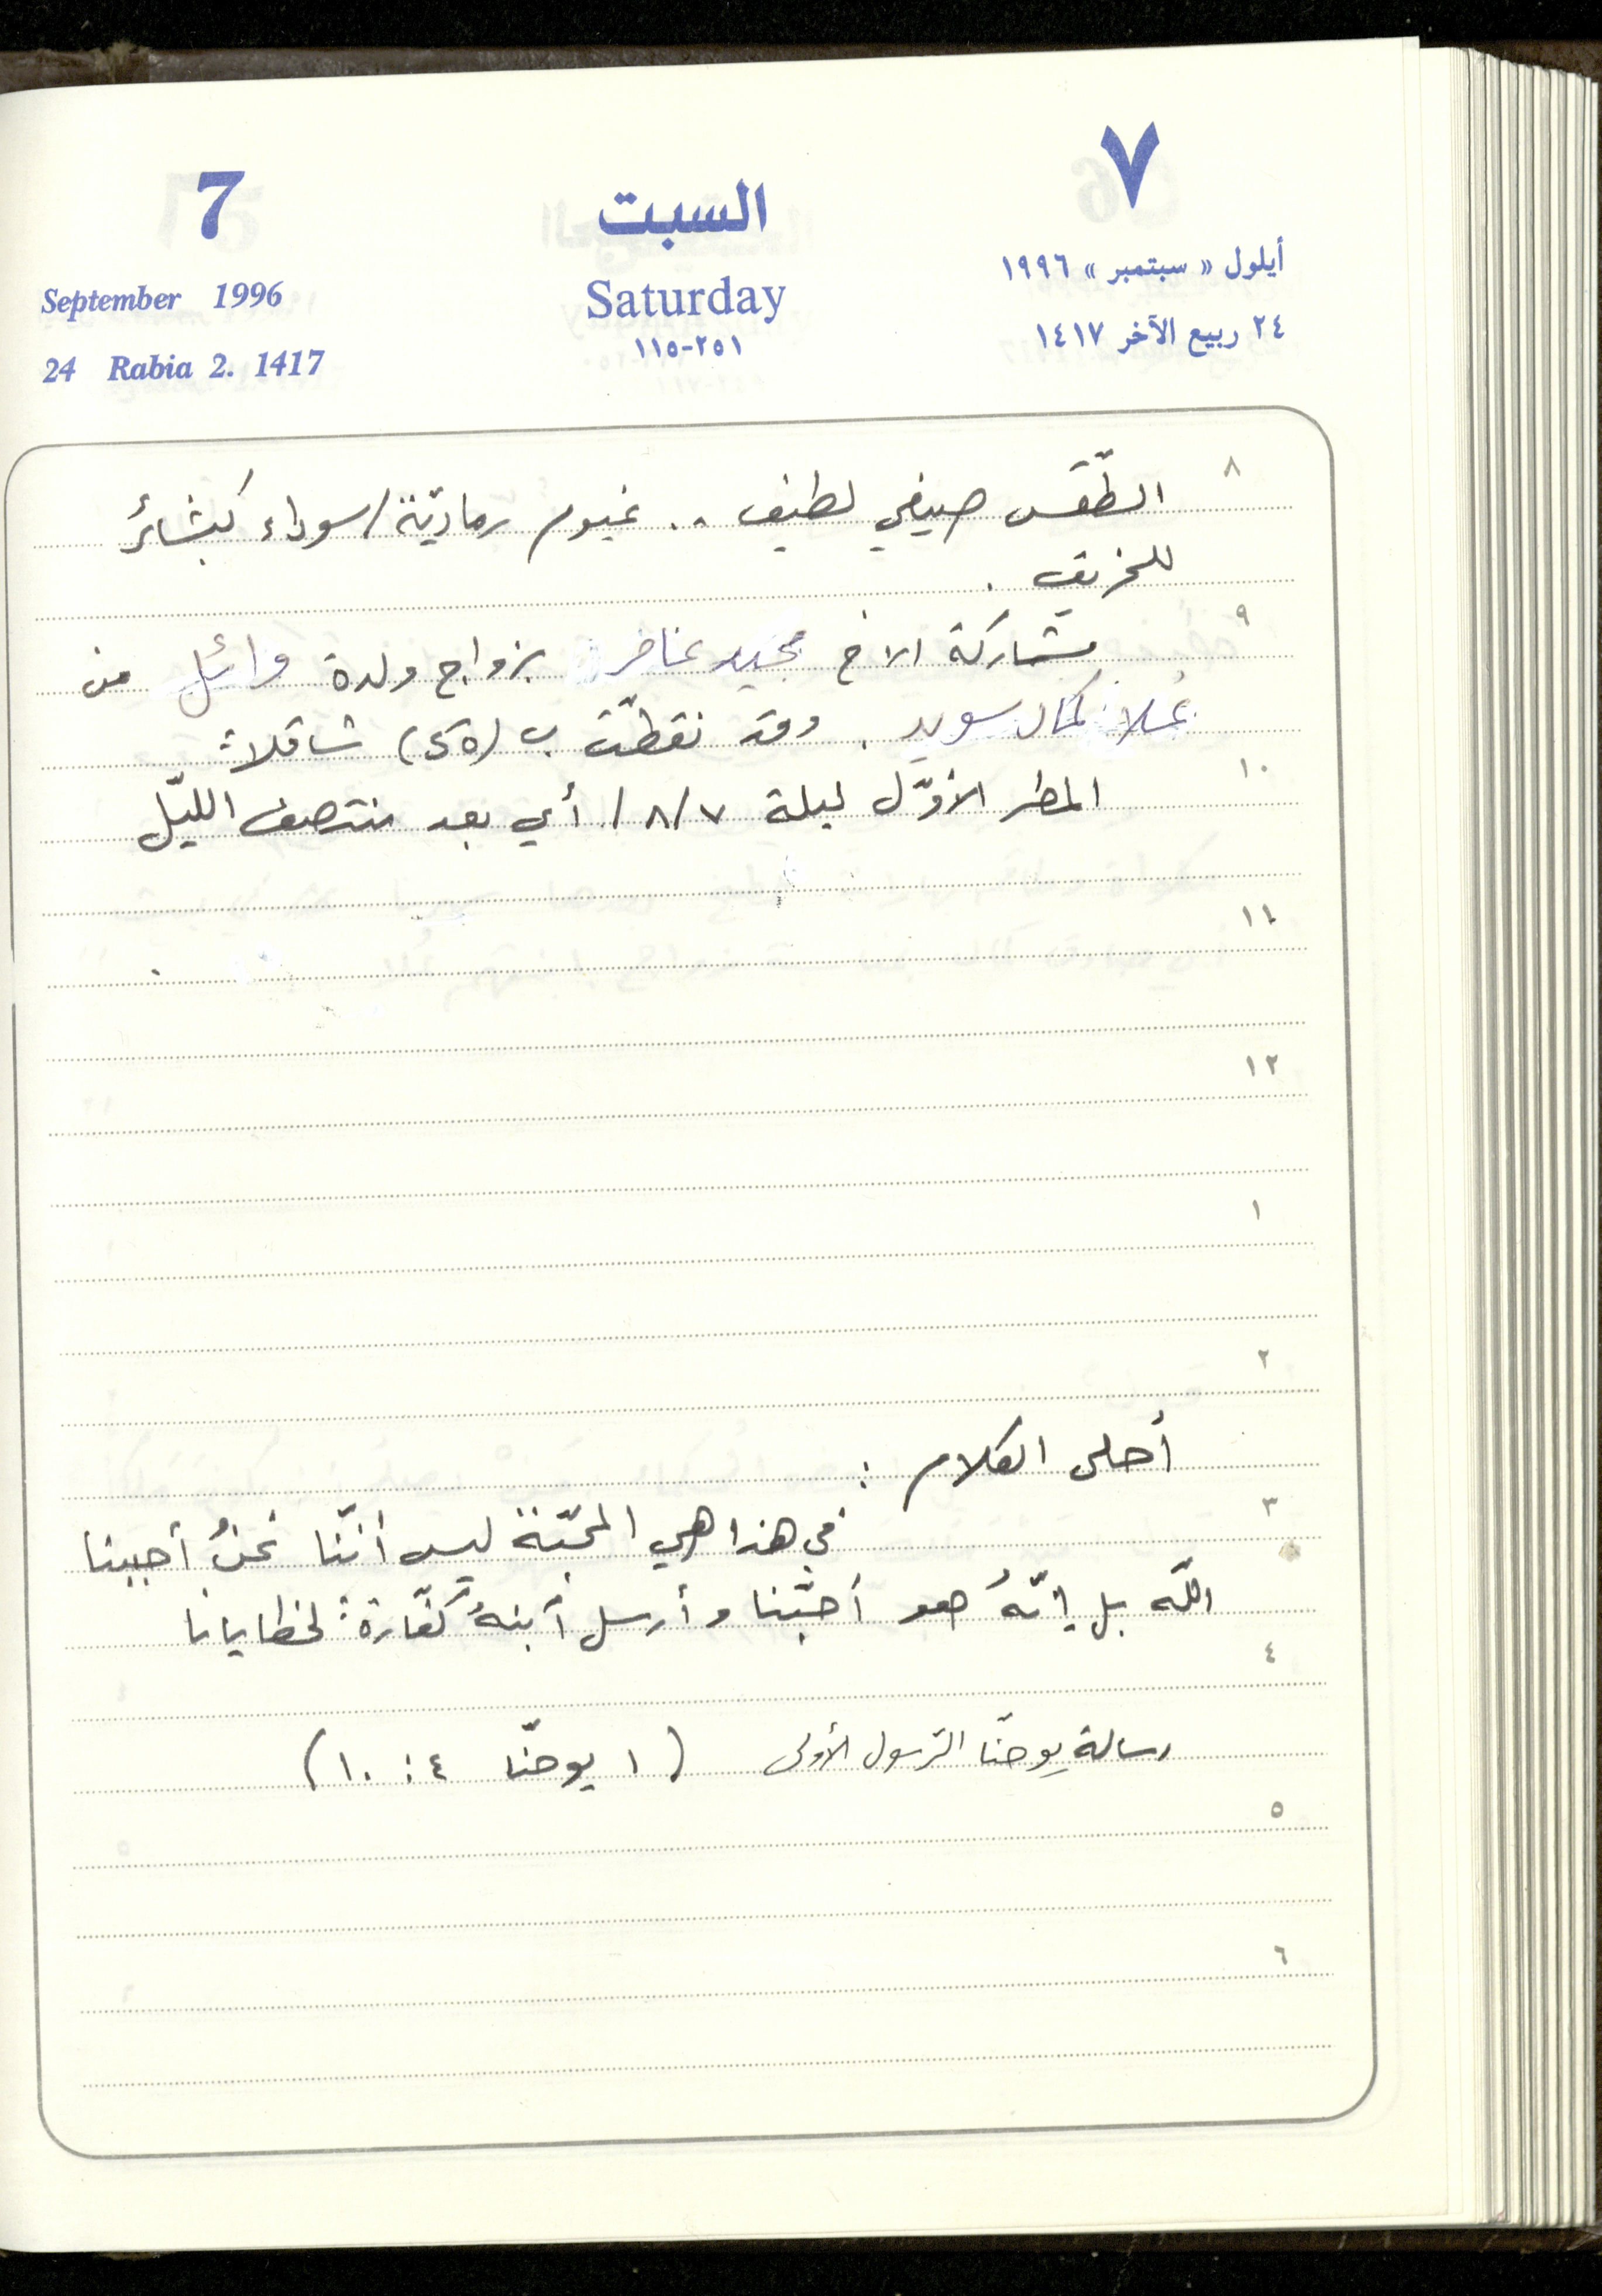 ٧
7
السبت
أيلول « سبتمبر » ١٩٩٦
September 1996
Saturday
٢٤ ربيع الآخر ١٤١٧
٢٥١-١١٥
24 Rabia 2. 1417
٨
الطّقس صيفي لطيف .. غيوم رماديّة/سوداء كبشائر
للخريف .
٩
مشاركة الاخ مجيد بزواج ولدة وائل من
كمال سويد . وقد نقطّت ب (٥٥) شاقلاً
١٠
المطر الأوّل ليلة ٨/٧/ أي بعد منتصف الليّل
١١
١٢
١
٢
أحلى الكلام :
٣
في هذا هي المحبّة ليس أنّنا نحنُ أحببنا
اللّه بل إنّهُ هو أحبّنا وأرسل أبنهُ كفّارةً لخطايانا
٤
رسالة يوحنّا الرّسول الأولى (١ يوحنّا ٤ : ١٠)
٥
٦